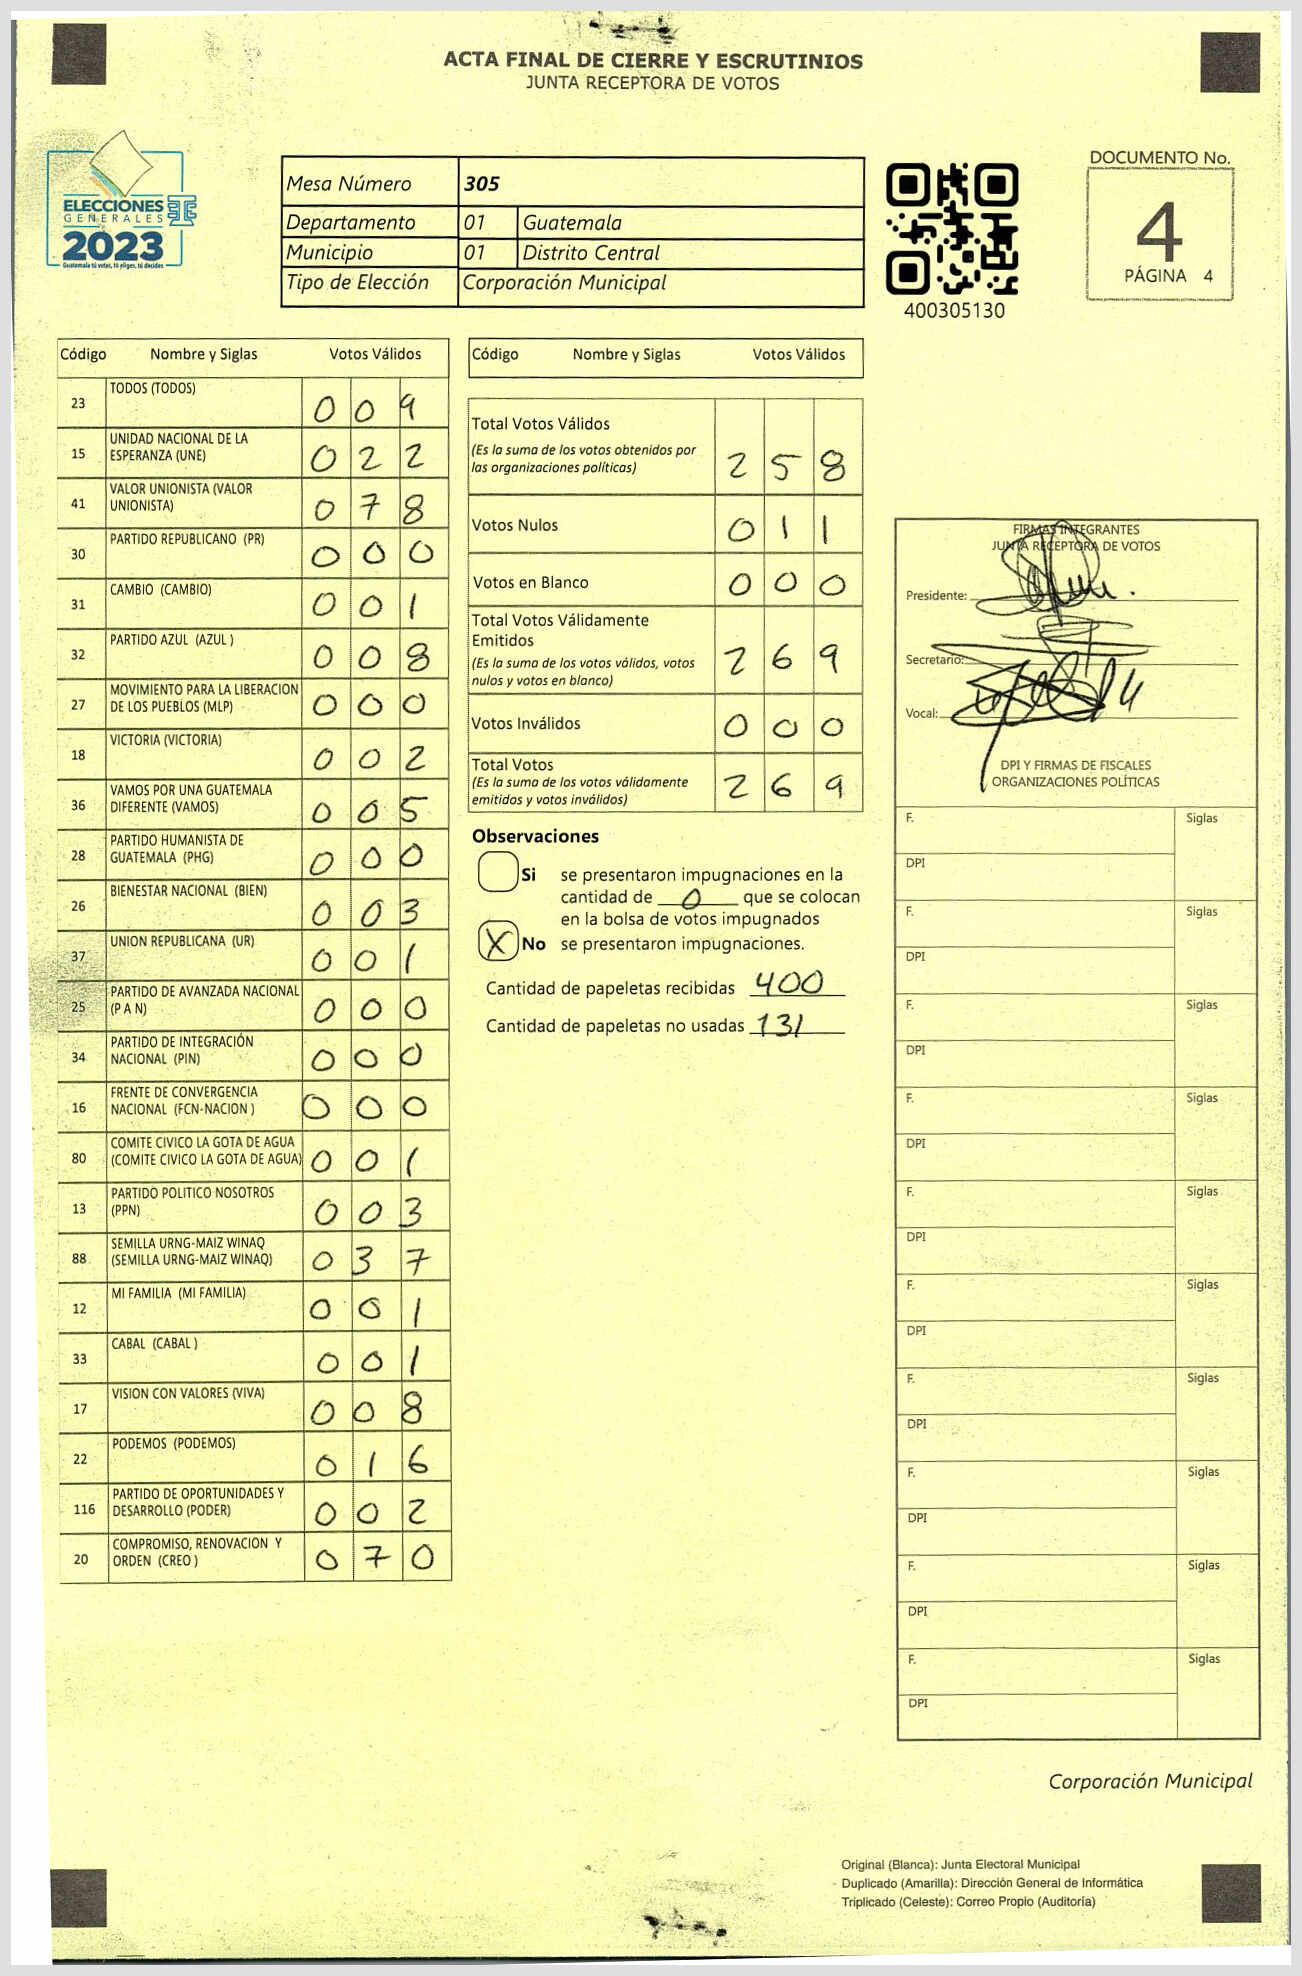 ACTA FINAL DE CIERRE Y ESCRUTINIOS
JUNTA RECEPTORA DE VOTOS
ELECCIONES
GENERALES
2023
Guatemala tú votas, tú eliges, tú decides
Mesa Número 305
Departamento 01 Guatemala
Municipio 01 Distrito Central
Tipo de Elección Corporación Municipal
400305130
DOCUMENTO No.
4
PÁGINA 4
Código Nombre y Siglas Votos Válidos
23 TODOS (TODOS) 0 0 9
15 UNIDAD NACIONAL DE LA
ESPERANZA (UNE) 0 2 2
41 VALOR UNIONISTA (VALOR
UNIONISTA) 0 7 8
30 PARTIDO REPUBLICANO (PR) 0 0 0
31 CAMBIO (CAMBIO) 0 0 1
32 PARTIDO AZUL (AZUL ) 0 0 8
27 MOVIMIENTO PARA LA LIBERACION
DE LOS PUEBLOS (MLP) 0 0 0
18 VICTORIA (VICTORIA) 0 0 2
36 VAMOS POR UNA GUATEMALA
DIFERENTE (VAMOS) 0 0 5
28 PARTIDO HUMANISTA DE
GUATEMALA (PHG) 0 0 0
26 BIENESTAR NACIONAL (BIEN) 0 0 3
37 UNION REPUBLICANA (UR) 0 0 1
25 PARTIDO DE AVANZADA NACIONAL
(P A N) 0 0 0
34 PARTIDO DE INTEGRACIÓN
NACIONAL (PIN) 0 0 0
16 FRENTE DE CONVERGENCIA
NACIONAL (FCN-NACION ) 0 0 0
80 COMITE CIVICO LA GOTA DE AGUA
(COMITE CIVICO LA GOTA DE AGUA) 0 0 1
13 PARTIDO POLITICO NOSOTROS
(PPN) 0 0 3
88 SEMILLA URNG-MAIZ WINAQ
(SEMILLA URNG-MAIZ WINAQ) 0 3 7
12 MI FAMILIA (MI FAMILIA) 0 0 1
33 CABAL (CABAL ) 0 0 1
17 VISION CON VALORES (VIVA) 0 0 8
22 PODEMOS (PODEMOS) 0 1 6
116 PARTIDO DE OPORTUNIDADES Y
DESARROLLO (PODER) 0 0 2
20 COMPROMISO, RENOVACION Y
ORDEN (CREO ) 0 7 0
Código Nombre y Siglas Votos Válidos
Total Votos Válidos
(Es la suma de los votos obtenidos por
las organizaciones políticas) 2 5 8
Votos Nulos 0 1 1
Votos en Blanco 0 0 0
Total Votos Válidamente
Emitidos
(Es la suma de los votos válidos, votos
nulos y votos en blanco) 2 6 9
Votos Inválidos 0 0 0
Total Votos
(Es la suma de los votos válidamente
emitidos y votos inválidos) 2 6 9
Observaciones
Si se presentaron impugnaciones en la
cantidad de 0 que se colocan
en la bolsa de votos impugnados
X No se presentaron impugnaciones.
Cantidad de papeletas recibidas 400
Cantidad de papeletas no usadas 131
FIRMAS INTEGRANTES
JUNTA RECEPTORA DE VOTOS
Presidente:
Secretario:
Vocal:
DPI Y FIRMAS DE FISCALES
ORGANIZACIONES POLÍTICAS
F. Siglas
DPI
F. Siglas
DPI
F. Siglas
DPI
F. Siglas
DPI
F. Siglas
DPI
F. Siglas
DPI
F. Siglas
DPI
F. Siglas
DPI
F. Siglas
DPI
F. Siglas
DPI
Corporación Municipal
Original (Blanca): Junta Electoral Municipal
Duplicado (Amarilla): Dirección General de Informática
Triplicado (Celeste): Correo Propio (Auditoría)